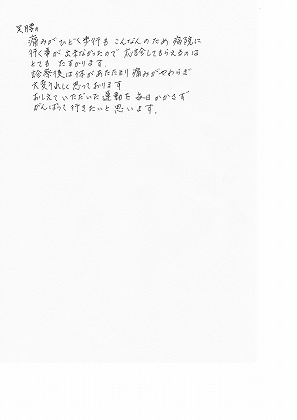 足腰の
痛みがひどく歩行も こんなんのため 病院に
行く事が出来なかったので 応診してもらえるのは
とても たすかります。
診察後は体があたたまり 痛みがやわらぎ
大変うれしく思っております
おしえていただいた運動を 毎日かかさず
がんばって行きたいと 思います。